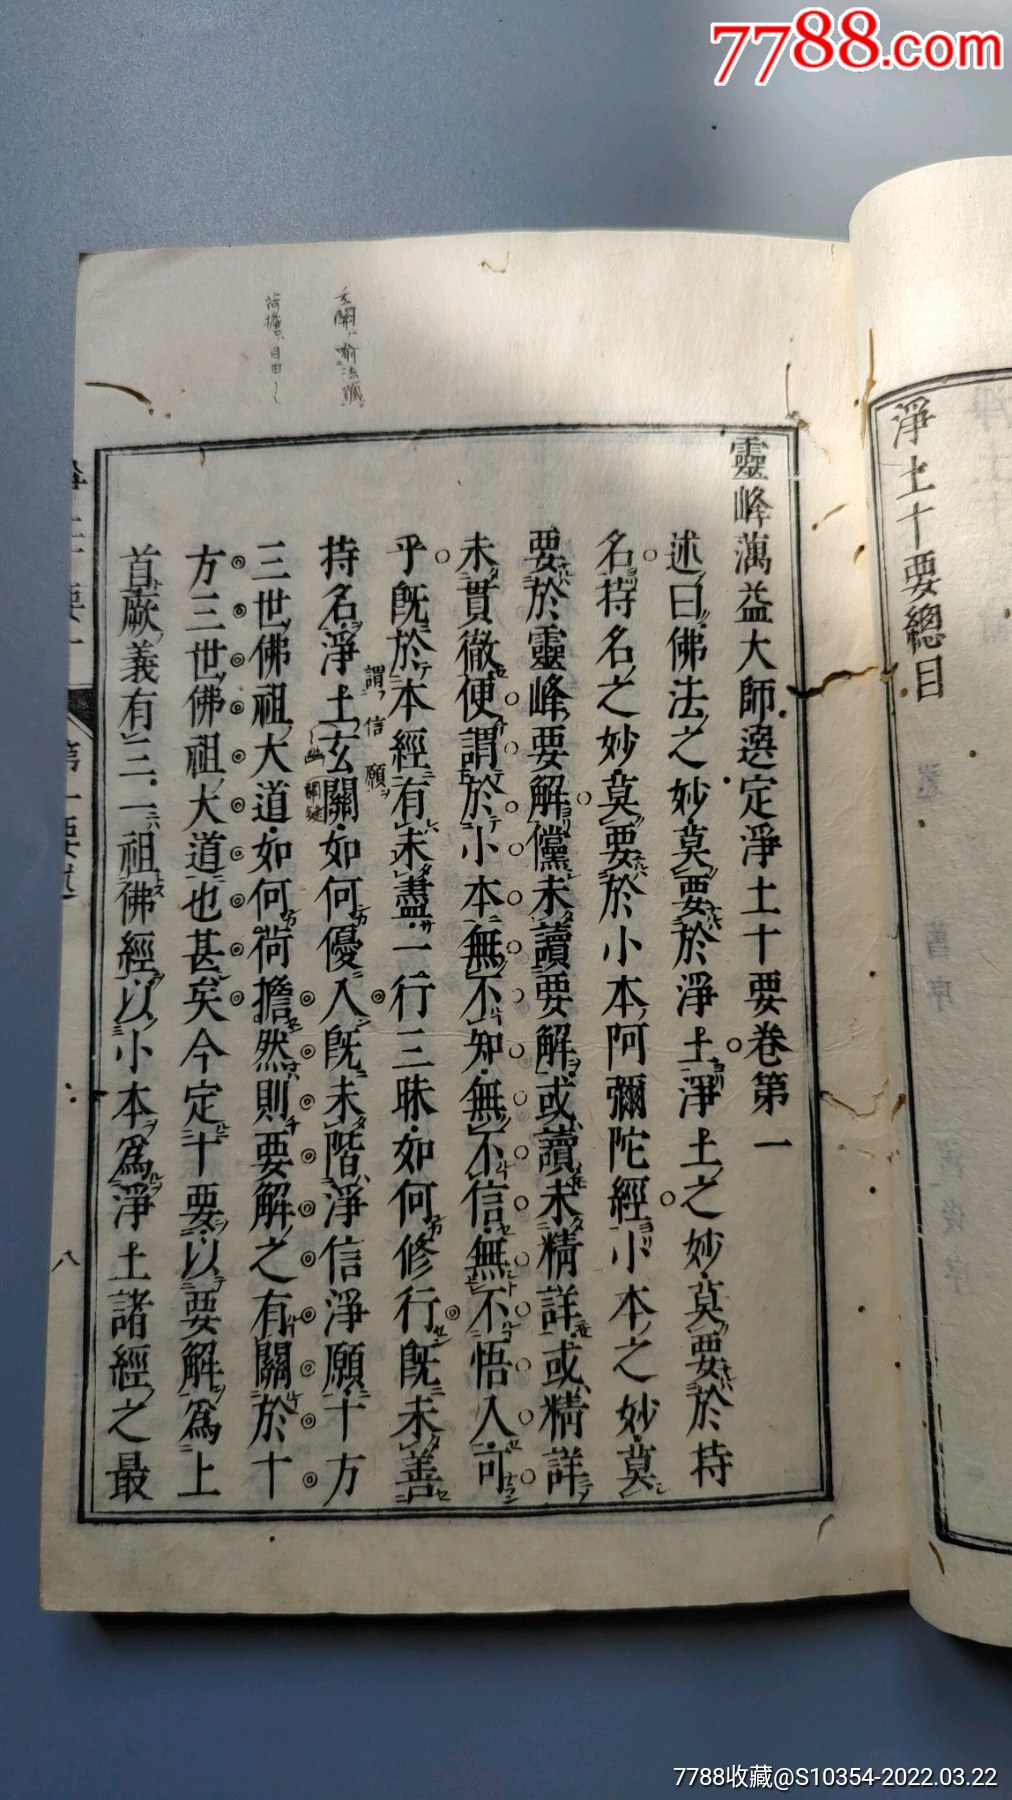 7788.com
淨土十要總目
靈峰蕅益大師選定淨土十要卷第一
述曰佛法之妙莫要於淨土淨土之妙莫要於持
名持名之妙莫要於小本阿彌陀經小本之妙莫
要於靈峰要解儻未讀要解或讀未精詳或精詳
未貫徹便謂於小本無不知無不信無不悟入可
乎既於本經有未盡一行三昧如何修行既未善
持名淨土玄關如何優入既未階淨信淨願十方
謂信願
三世佛祖大道如何荷擔然則要解之有關於十
方三世佛祖大道也甚矣今定十要以要解為上
首厥義有三一祖佛經以小本為淨土諸經之最
八
7788收藏@S10354-2022.03.22